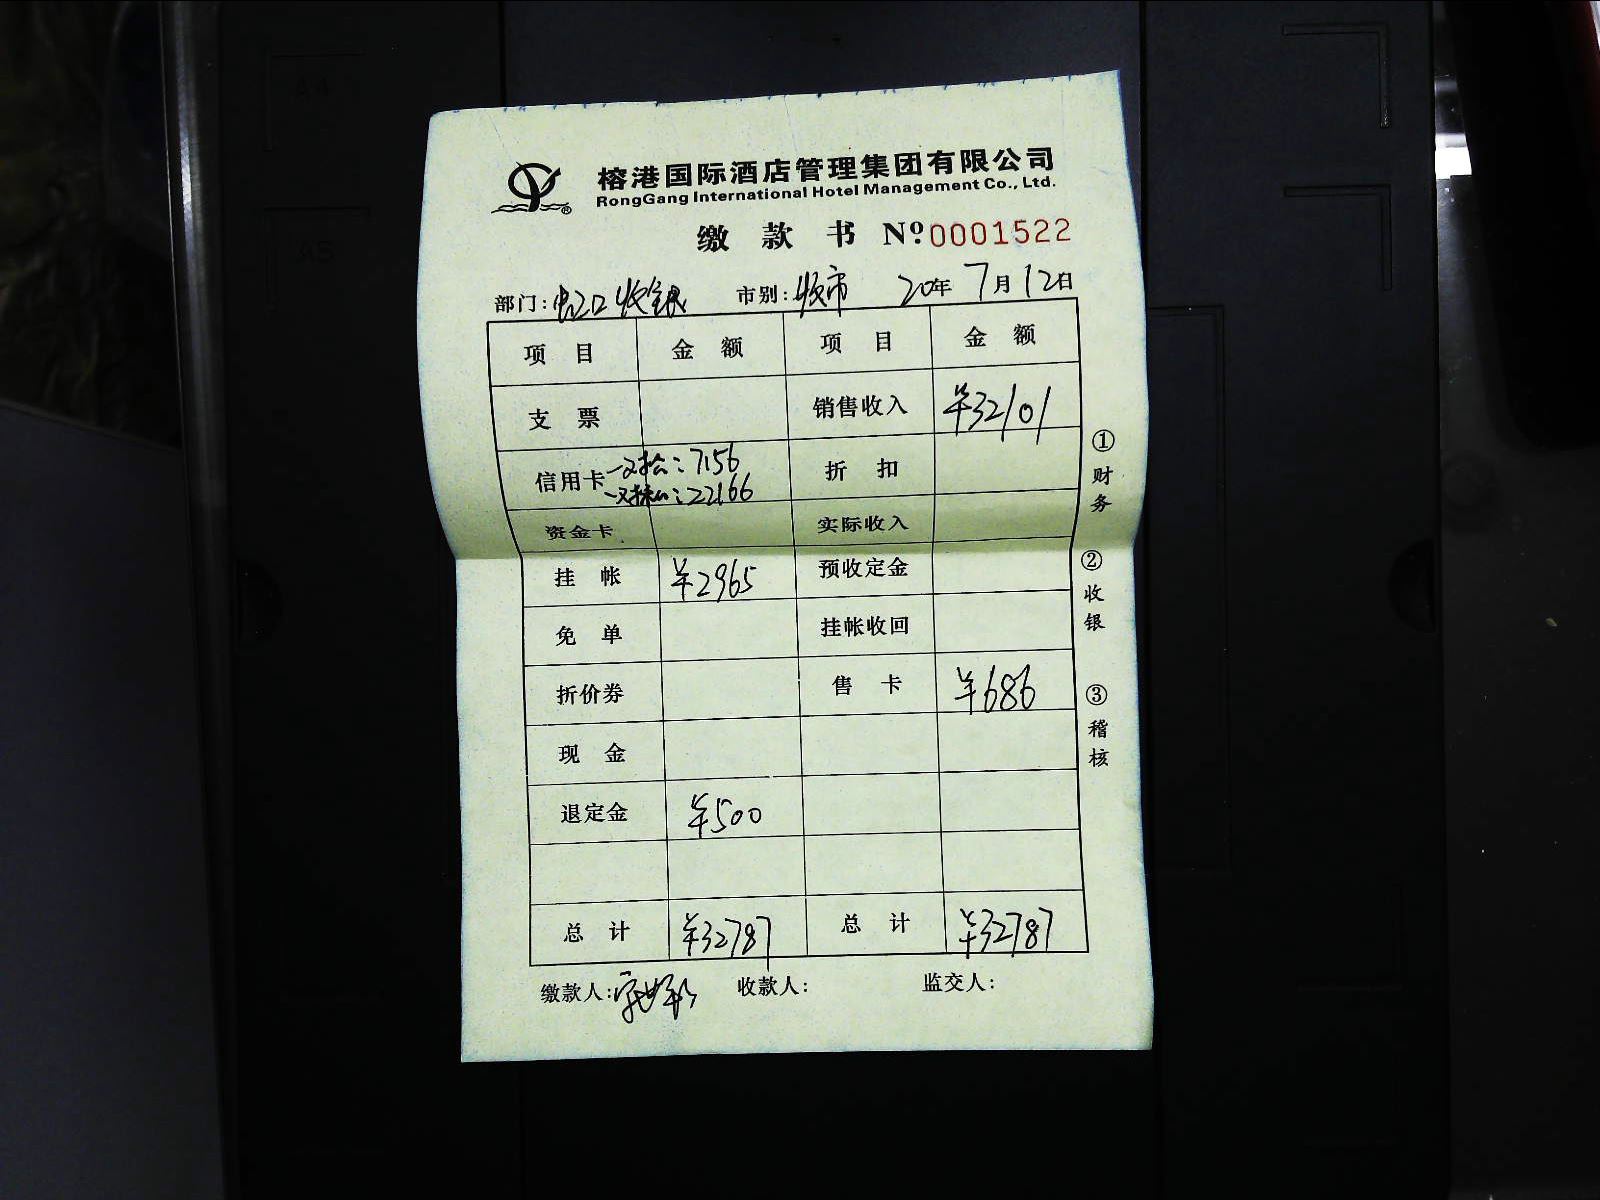 榕港国际酒店管理集团有限公司
RongGang International Hotel Management Co., Ltd.
缴 款 书 Nº 0001522
部门: 收银 市别: 收市 20年 7月12日
项 目 金 额 项 目 金 额
支 票 销售收入 ¥32101
信用卡 一又拾: 7156 折 扣
: 22166
资金卡 实际收入
挂 帐 ¥2965 预收定金
免 单 挂帐收回
折价券 售 卡 ¥686
现 金
退定金 ¥500
总 计 ¥32787 总 计 ¥32787
缴款人: 收款人: 监交人:
①财务 ②收银 ③稽核
A4
A5